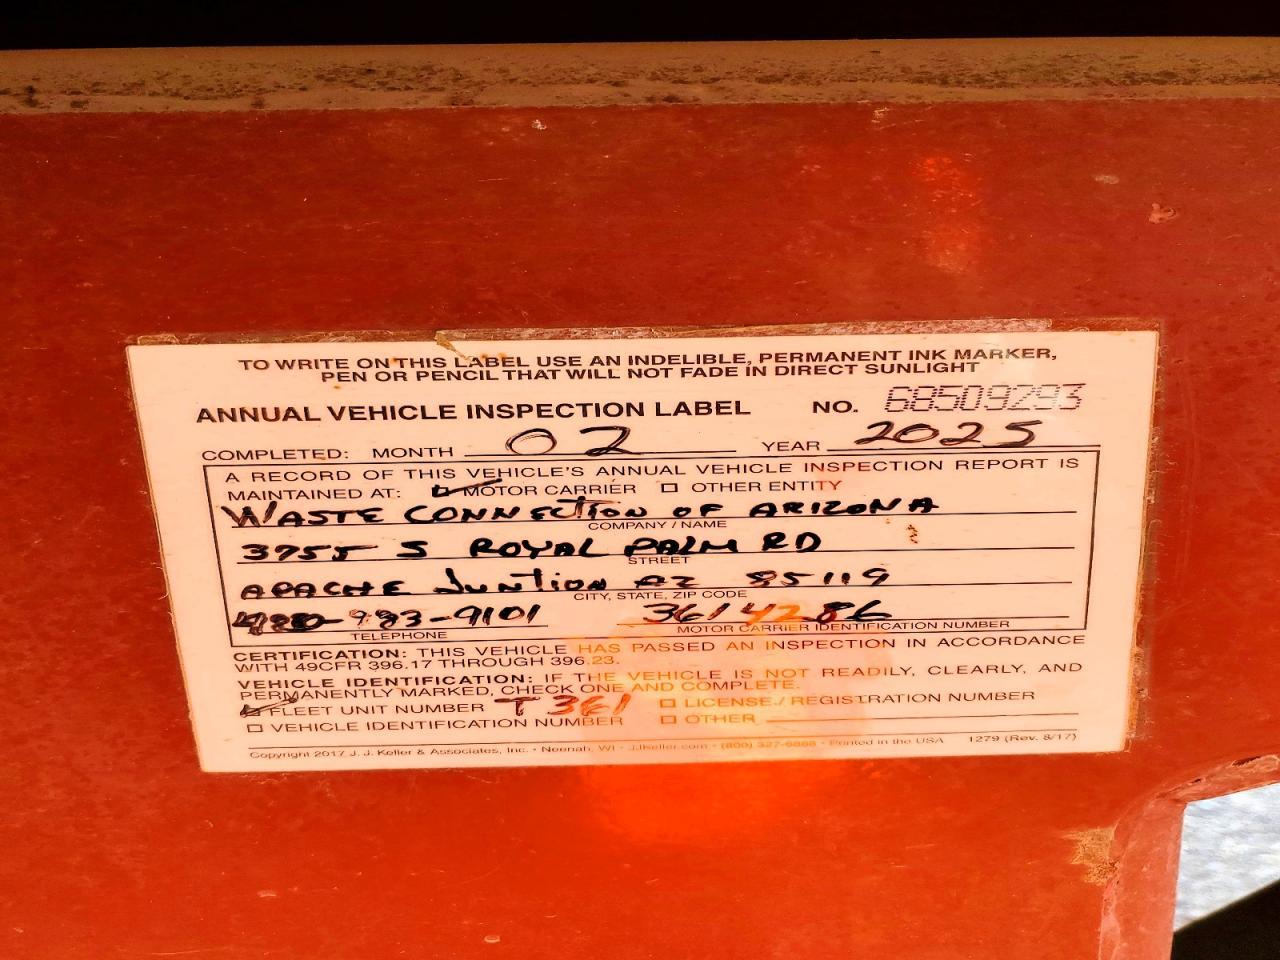 TO WRITE ON THIS LABEL USE AN INDELIBLE, PERMANENT INK MARKER,
PEN OR PENCIL THAT WILL NOT FADE IN DIRECT SUNLIGHT
ANNUAL VEHICLE INSPECTION LABEL NO. 68509293
COMPLETED: MONTH 02 YEAR 2025
A RECORD OF THIS VEHICLE'S ANNUAL VEHICLE INSPECTION REPORT IS
MAINTAINED AT: MOTOR CARRIER OTHER ENTITY
WASTE CONNECTION OF ARIZONA
COMPANY / NAME
3755 S ROYAL PALM RD
STREET
APACHE JUNTION AZ 85119
CITY, STATE, ZIP CODE
480-983-9101 36142 86
TELEPHONE MOTOR CARRIER IDENTIFICATION NUMBER
CERTIFICATION: THIS VEHICLE HAS PASSED AN INSPECTION IN ACCORDANCE
WITH 49CFR 396.17 THROUGH 396.23.
VEHICLE IDENTIFICATION: IF THE VEHICLE IS NOT READILY, CLEARLY, AND
PERMANENTLY MARKED, CHECK ONE AND COMPLETE.
FLEET UNIT NUMBER T 361 LICENSE / REGISTRATION NUMBER
VEHICLE IDENTIFICATION NUMBER OTHER
Copyright 2017 J. J. Keller & Associates, Inc. • Neenah, WI • JJKeller.com • (800) 327-6868 • Printed in the USA 1279 (Rev. 8/17)